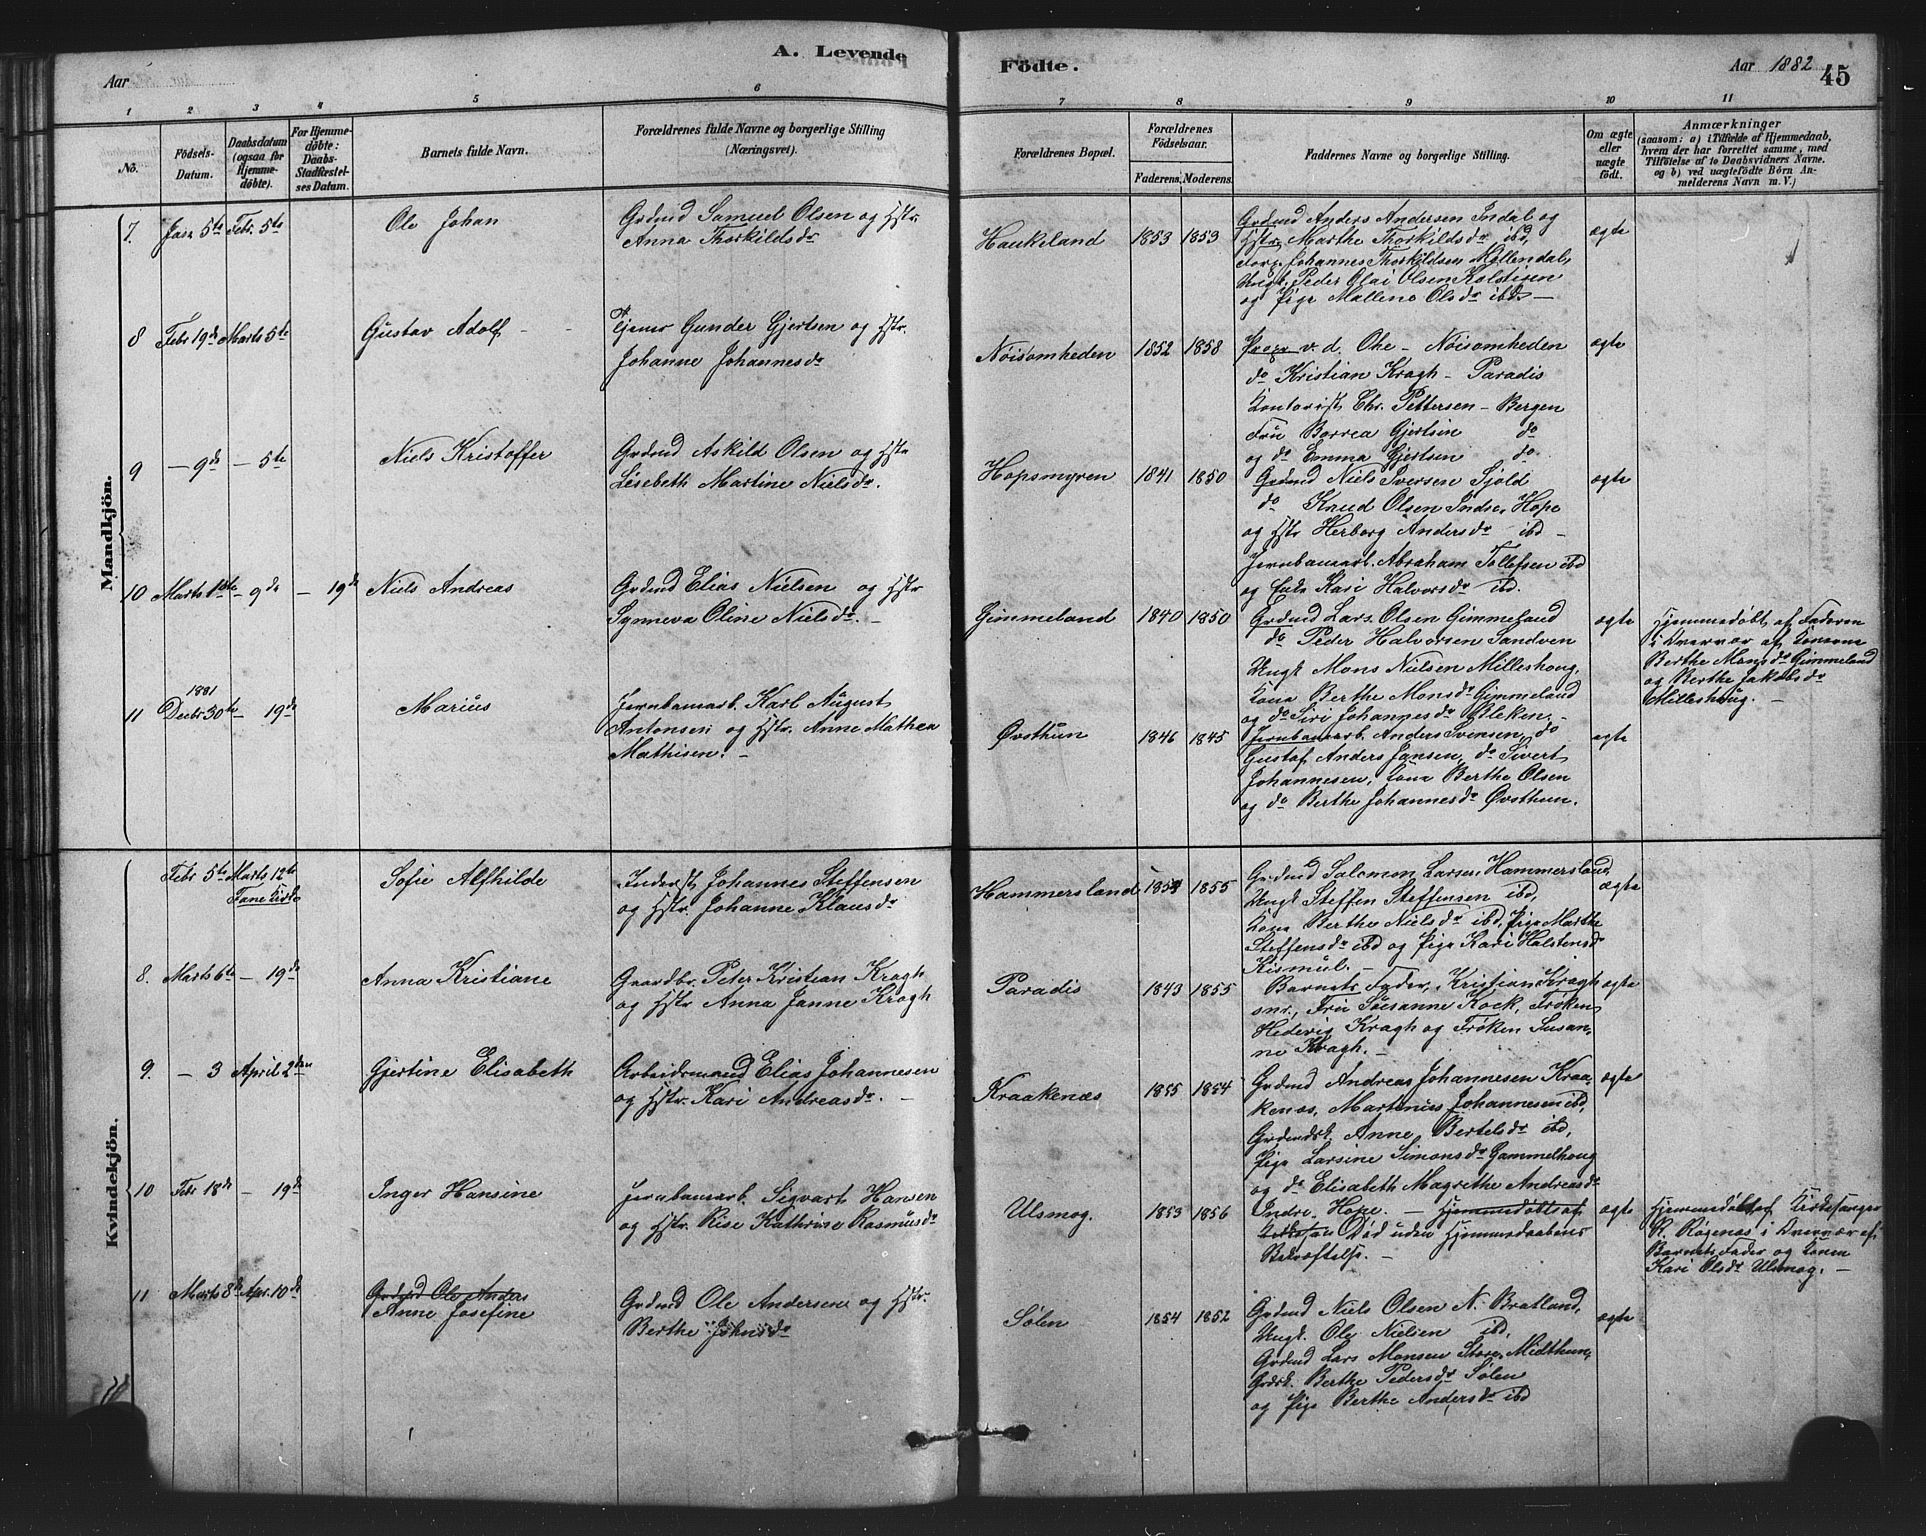 A. Levende
Aar
1 2 3 4 5 6
No.
Födsels-
Datum.
Daabsdatum
(ogsaa for
Hjemme-
døbte).
For Hjemme-
döbte:
Daabs-
Stadfæstel-
ses Datum.
Barnets fulde Navn.
Forældrenes fulde Navne og borgerlige Stilling
(Næringsvei).
Mandkjön.
7. Jan 5te Febr. 5te Ole Johan Grdmd Samuel Olsen og Hstr.
Anna Thorkildsdr
8 Febr 19de Marts 5te Gustav Adolf Tjener Gunder Gjertsen og Hstr.
Johanne Johannesdr
9 — 9de — 5te Niels Kristoffer Grdmd Askild Olsen og Hstr
Lisebeth Martine Nielsdr.
10 Marts — 9de — 19de Niels Andreas Grdmd Elias Nielsen og Hstr
Synneva Oline Nielsdr. —
1881
11 Decbr 30te — 19de Marius Jernbanearb. Karl August
Antonsen og Hstr. Anne Mathea
Mathisen. —
Kvindekjön.
Febr 5te Marts 12te Sofie Alfhilde Inderst Johannes Steffensen
Fane Kirke og Hstr. Johanne Klausdr
8. Marts 6te — 19de Anna Kristiane Gaardbr. Peter Kristian Kragh
og Hstr Anna Janne Kragh
9. — 3 April 2den Gjertine Elisabeth Arbeidsmand Elias Johannesen
og Hstr. Kari Andreasdr. —
10 Febr 18de — 19de Inger Hansine Jernbanearb. Sigvart Hansen
og Hstr. Rise Kathrine Rasmusdr
11 Marts 8de Apr. 10de Grdmd Ole Anders
Anne Josefine Grdmd Ole Andersen og Hstr.
Berthe Johnsdr
Födte.
Aar 1882 45
7 8 9 10 11
Forældrenes Bopæl.
Forældrenes
Födselsaar.
Faderens. Moderens.
Faddernes Navne og borgerlige Stilling.
Om ægte
eller
uægte
födt.
Anmærkninger
(saasom: a) i Tilfælde af Hjemmedaab,
hvem der har forrettet samme, med
Tilföielse af to Daabsvidners Navne.
og b) ved uægtefödte Börn An-
melderens Navn m. V.)
Haukeland 1853 1853 Grdmd Anders Andersen Indal og ægte
Hstr. Marthe Thorkildsdr ibd,
Johannes Thorkildsen Møllendal,
Ungk. Peder Olai Olsen Kalstisen
og Pige Malleno Olsdr ibd —
Nöisomheden 1852 1858 v. d. Ohe — Nöisomheden ægte
do Kristian Kragh — Paradis
Kontorist Chr. Pettersen — Bergen
Fru Borrea Gjertsen do
og do Emma Gjertsen do.
Hopsmyren 1841 1850 Grdmd Niels Iversen Sjöld ægte
do Knud Olsen Indre Hope
og Hstr Herborg Andersdr ibd —
Jernbanearb. Abraham Tollefsen ibd
og Enke Kari Halvorsdr ibd.
Gimmeland 1840 1850 Grdmd Lars Olsen Gimmeland ægte Hjemmedöbt af Faderen
do Peder Halvorsen Sandven i Nærvær af Konerne
Ungk Mons Nielsen Milleshoug, Berthe Monsdr Gimmeland
Kona Berthe Monsdr Gimmeland og Berthe Jakobsdr
og do Siri Johannesdr Bleken. — Milleshoug. —
Øvsthun 1846 1845 Jernbanearb. Anders Svensen, do ægte
Gustaf Anders Jansen, do Sivert
Johannesen, Kona Berthe Olsen
og do Berthe Johannesdr Øvsthun.
Hammersland 1855 Grdmd Salomon Larsen Hammersland, ægte
Ungk Steffen Steffensen ibd,
Kona Berthe Nielsdr ibd, Pige Marthe
Steffensdr ibd og Pige Kari Halstensdr
Kismul. —
Paradis 1843 1855 Barnets Fader, Kristian Kragh ægte
snr., Fru Susanne Kock, Frøken
Hedevig Kragh og Frøken Susan-
ne Kragh. —
Kraakenæs 1855 1854 Grdmd Andreas Johannesen Kraa- ægte
kenæs, Martinus Johannesen ibd,
Grdmdsk. Anne Bertelsdr ibd,
Pige Larsine Simonsdr Gammelhoug
og do Elisabeth Magrethe Andreasdr
Ulsmog. 1853 1856 Indre Hope. — Hjemmedöbt af ægte Hjemmedöbt af Kirkesanger
Död uden Hjemmedaabens R. Røgenæs i Nærvær af
Bekræftelse. — Barnets Fader og Konen
Kari Olsdr Ulsmog. —
Sølen 1854 1852 Grdmd Niels Olsen N. Bratland, ægte
Ungk. Ole Nielsen ibd,
Grdmd Lars Monsen Store Midthun,
Grdsk. Berthe Pedersdr Sølen
og Pige Berthe Andersdr ibd